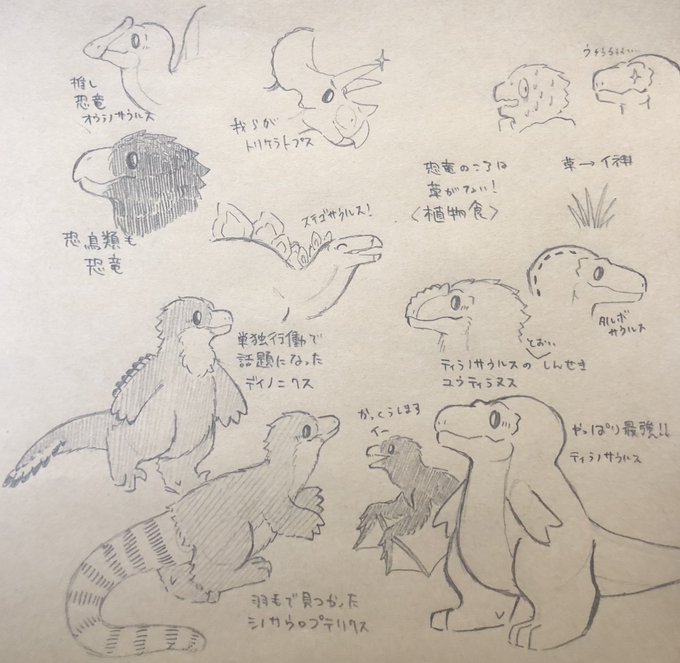 推し
恐竜
オウラノサウルス
我らが
トリケラトプス
恐鳥類も
恐竜
ステゴサウルス!
恐竜のころは
草がない!
〈植物食〉
草→イネ科
単独行動で
話題になった
デイノニクス
とおい
ティラノサウルスの しんせき
ユウティラヌス
アルボ
サウルス
かっくうします
イー
やっぱり最強!!
ティラノサウルス
羽毛で見つかった
シノサウロプテリクス